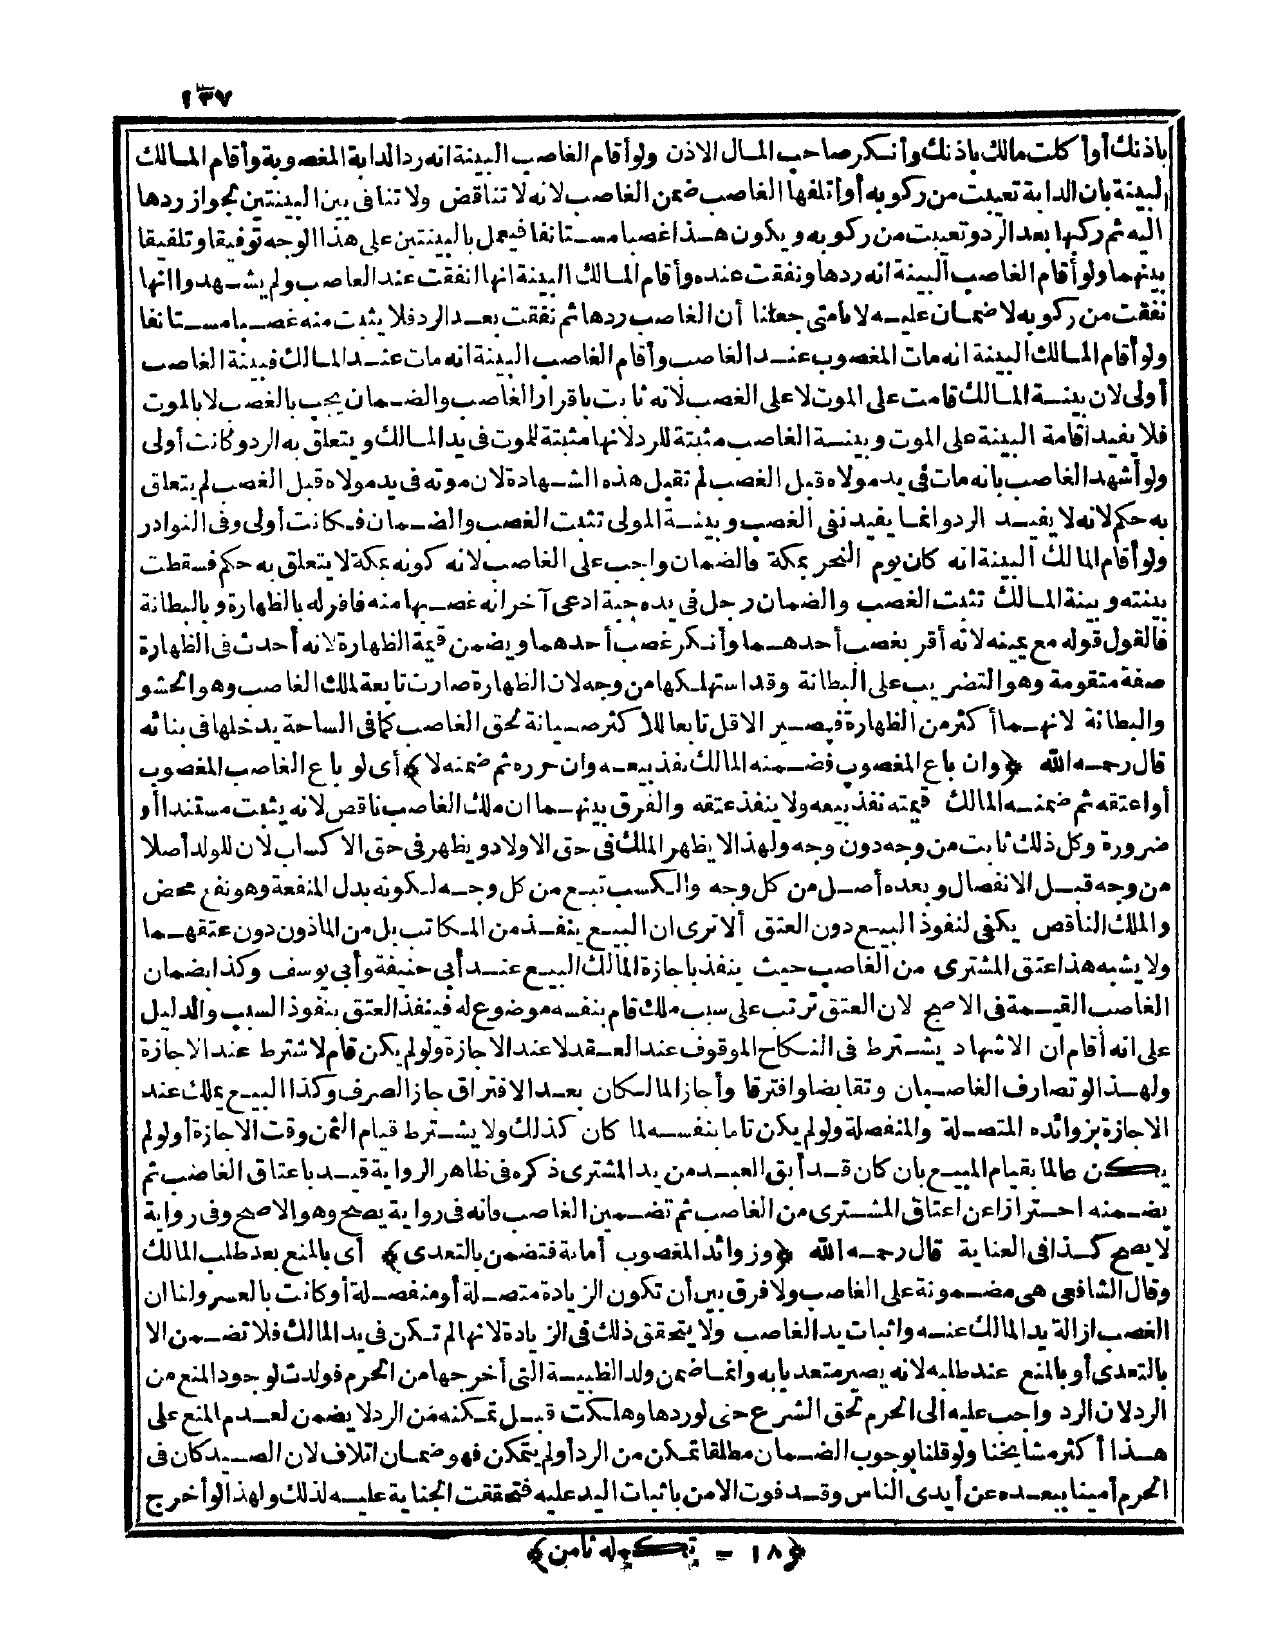 ١٣٧
باذنك أو أكلت مالك باذنك وأنكر صاحب المال الاذن ولو أقام الغاصب البينة انه رد الدابة المغصوبة وأقام المالك
البينة بان الدابة تعيبت من ركوبه أو اتلفها الغاصب ضمن الغاصب لانه لا تناقض ولا تنافى بين البينتين لجواز ردها
اليه ثم ركبها بعد الرد وتعيبت من ركوبه ويكون هذا غصبا مستانفا فيعمل بالبينتين على هذا الوجه توفيقا وتلفيقا
بينهما ولو أقام الغاصب البينة انه ردها ونفقت عنده وأقام المالك البينة انها انفقت عند الغاصب ولم يشهدوا انها
نفقت من ركوبه لا ضمان عليه لانا متى جعلنا أن الغاصب ردها ثم نفقت بعد الرد فلا يثبت منه غصبا مستانفا
ولو أقام المالك البينة انه مات المغصوب عند الغاصب وأقام الغاصب البينة انه مات عند المالك فبينة الغاصب
أولى لان بينة المالك قامت على الموت لا على الغصب لانه ثابت باقرار الغاصب والضمان يجب بالغصب لا بالموت
فلا يفيد اقامة البينة على الموت وبينة الغاصب مثبتة للرد لانها مثبتة للموت فى يد المالك ويتعلق به الرد وكانت أولى
ولو أشهد الغاصب بانه مات فى يد مولاه قبل الغصب لم تقبل هذه الشهادة لان موته فى يد مولاه قبل الغصب لم يتعلق
به حكم لانه لا يفيد الرد وانما يفيد نفى الغصب وبينة المولى تثبت الغصب والضمان فكانت أولى وفى النوادر
ولو أقام المالك البينة انه كان يوم النحر بمكة فالضمان واجب على الغاصب لانه كونه بمكة لا يتعلق به حكم فسقطت
بينته وبينة المالك تثبت الغصب والضمان رجل فى يده جبة ادعى آخر انه غصبها منه فاقر له بالظهارة وبالبطانة
فالقول قوله مع يمينه لانه أقر بغصب أحدهما وأنكر غصب أحدهما ويضمن قيمة الظهارة لانه أحدث فى الظهارة
صفة متقومة وهو التضريب على البطانة وقد استهلكها من وجه لان الظهارة صارت تابعة لملك الغاصب وهو الحشو
والبطانة لانهما أكثر من الظهارة فيصير الاقل تابعا للاكثر صيانة لحق الغاصب كما فى الساحة يدخلها فى بنائه
قال رحمه الله ﴿وان باع المغصوب فضمنه المالك نفذ بيعه وان حرره ثم ضمنه لا﴾ أى لو باع الغاصب المغصوب
أو اعتقه ثم ضمنه المالك قيمته نفذ بيعه ولا ينفذ عتقه والفرق بينهما ان ملك الغاصب ناقص لانه يثبت مستندا أو
ضرورة وكل ذلك ثابت من وجه دون وجه ولهذا لا يظهر الملك فى حق الاولاد ويظهر فى حق الاكساب لان للولد أصلا
من وجه قبل الانفصال وبعده أصل من كل وجه والكسب تبع من كل وجه لكونه بدل المنفعة وهو نفع محض
والملك الناقص يكفى لنفوذ البيع دون العتق ألا ترى ان البيع ينفذ من المكاتب بل من المأذون دون عتقهما
ولا يشبه هذا عتق المشترى من الغاصب حيث ينفذ باجازة المالك البيع عند أبى حنيفة وأبى يوسف وكذا بضمان
الغاصب القيمة فى الاصح لان العتق ترتب على سبب ملك قام بنفسه موضوع له فينفذ العتق بنفوذ السبب والدليل
على انه أقام ان الاشهاد يشترط فى النكاح الموقوف عند العقد لا عند الاجازة ولو لم يكن قام لاشترط عند الاجازة
ولهذا لو تصارف الغاصبان وتقابضا وافترقا وأجاز المالكان بعد الافتراق جاز الصرف وكذا البيع يملك عند
الاجازة بزوائده المتصلة والمنفصلة ولو لم يكن تاما بنفسه لما كان كذلك ولا يشترط قيام الثمن وقت الاجازة أو لو لم
يكن عالما بقيام المبيع بان كان قد أبق العبد من يد المشترى ذكره فى ظاهر الرواية قيد باعتاق الغاصب ثم
يضمنه احترازا عن اعتاق المشترى من الغاصب ثم تضمين الغاصب فانه فى رواية يصح وهو الاصح وفى رواية
لا يصح كذا فى العناية قال رحمه الله ﴿وزوائد المغصوب أمانة فتضمن بالتعدى﴾ أى بالمنع بعد طلب المالك
وقال الشافعى هى مضمونة على الغاصب ولا فرق بين أن تكون الزيادة متصلة أو منفصلة أو كانت بالعسر ولنا ان
الغصب ازالة يد المالك عنه واثبات يد الغاصب ولا يتحقق ذلك فى الزيادة لانها لم تكن فى يد المالك فلا تضمن الا
بالتعدى أو بالمنع عند طلبه لانه يصير متعديا به وانما ضمن ولد الظبية التى أخرجها من الحرم فولدت لوجود المنع من
الرد لان الرد واجب عليه الى الحرم لحق الشرع حتى لو ردها وهلكت قبل تمكنه من الرد لا يضمن لعدم المنع على
هذا أكثر مشايخنا ولو قلنا بوجوب الضمان مطلقا تمكن من الرد أو لم يتمكن فهو ضمان اتلاف لان الصيد كان فى
الحرم أمينا ببعده عن أيدى الناس وقد فوت الامن باثبات اليد عليه فتحققت الجناية عليه لذلك ولهذا لو أخرج
﴿١٨ – تكمله ثامن﴾